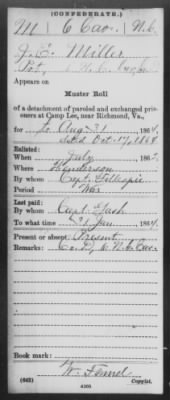 (CONFEDERATE.)
M 6 Cav. N.C.
J. E. Miller
Pvt.
Appears on
Muster Roll
of a detachment of paroled and exchanged prisoners at Camp Lee, near Richmond, Va.,
for to Aug 31, 1864.
dated Oct. 17, 1864
Enlisted:
When July, 186
Where Henderson
By whom Capt. Gillespie
Period War
Last paid:
By whom Capt. Gash
To what time 31 Jan, 1864.
Present or absent Present
Remarks: Co. D, 6 N.C. Cav.
Book mark:
W. Fennel
(642) Copyist.